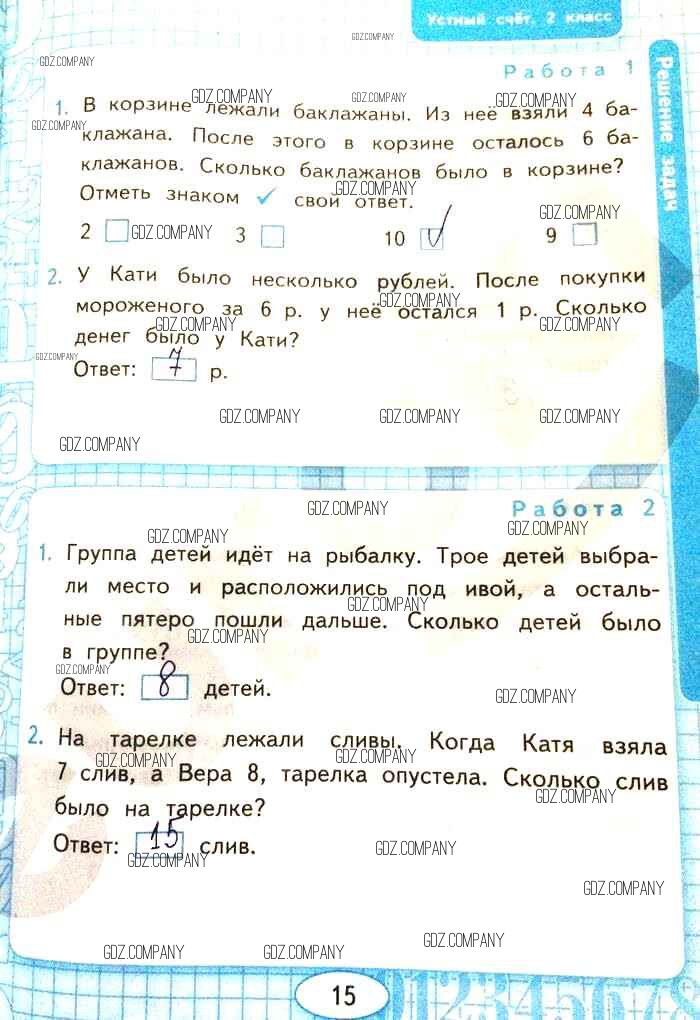 Устный счёт, 2 класс
GDZ.COMPANY
GDZ.COMPANY
Работа 1
Решение задач
GDZ.COMPANY GDZ.COMPANY GDZ.COMPANY
1. В корзине лежали баклажаны. Из неё взяли 4 ба-
GDZ.COMPANY
клажана. После этого в корзине осталось 6 ба-
клажанов. Сколько баклажанов было в корзине?
GDZ.COMPANY
Отметь знаком ✓ свой ответ.
GDZ.COMPANY
2 GDZ.COMPANY 3 10 ✓ 9
2. У Кати было несколько рублей. После покупки
GDZ.COMPANY
мороженого за 6 р. у неё остался 1 р. Сколько
GDZ.COMPANY GDZ.COMPANY
денег было у Кати?
GDZ.COMPANY
Ответ: 7 р.
GDZ.COMPANY GDZ.COMPANY GDZ.COMPANY
GDZ.COMPANY
GDZ.COMPANY
Работа 2
GDZ.COMPANY GDZ.COMPANY
1. Группа детей идёт на рыбалку. Трое детей выбра-
ли место и расположились под ивой, а осталь-
GDZ.COMPANY
ные пятеро пошли дальше. Сколько детей было
GDZ.COMPANY
в группе?
GDZ.COMPANY
Ответ: 8 детей.
GDZ.COMPANY
2. На тарелке лежали сливы. Когда Катя взяла
GDZ.COMPANY GDZ.COMPANY GDZ.COMPANY
7 слив, а Вера 8, тарелка опустела. Сколько слив
GDZ.COMPANY
было на тарелке?
Ответ: 15 слив.
GDZ.COMPANY GDZ.COMPANY
GDZ.COMPANY
GDZ.COMPANY GDZ.COMPANY GDZ.COMPANY
15
012345678